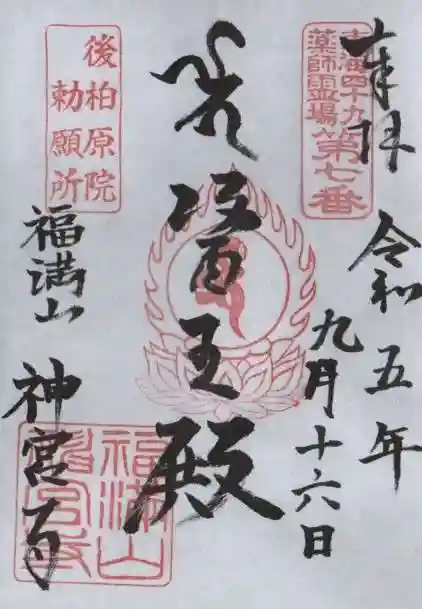 奉拝
東海四十九
薬師霊場第七番
令和五年
九月十六日
醫王殿
後柏原院
勅願所
福満山
神宮寺
福満山
神宮寺